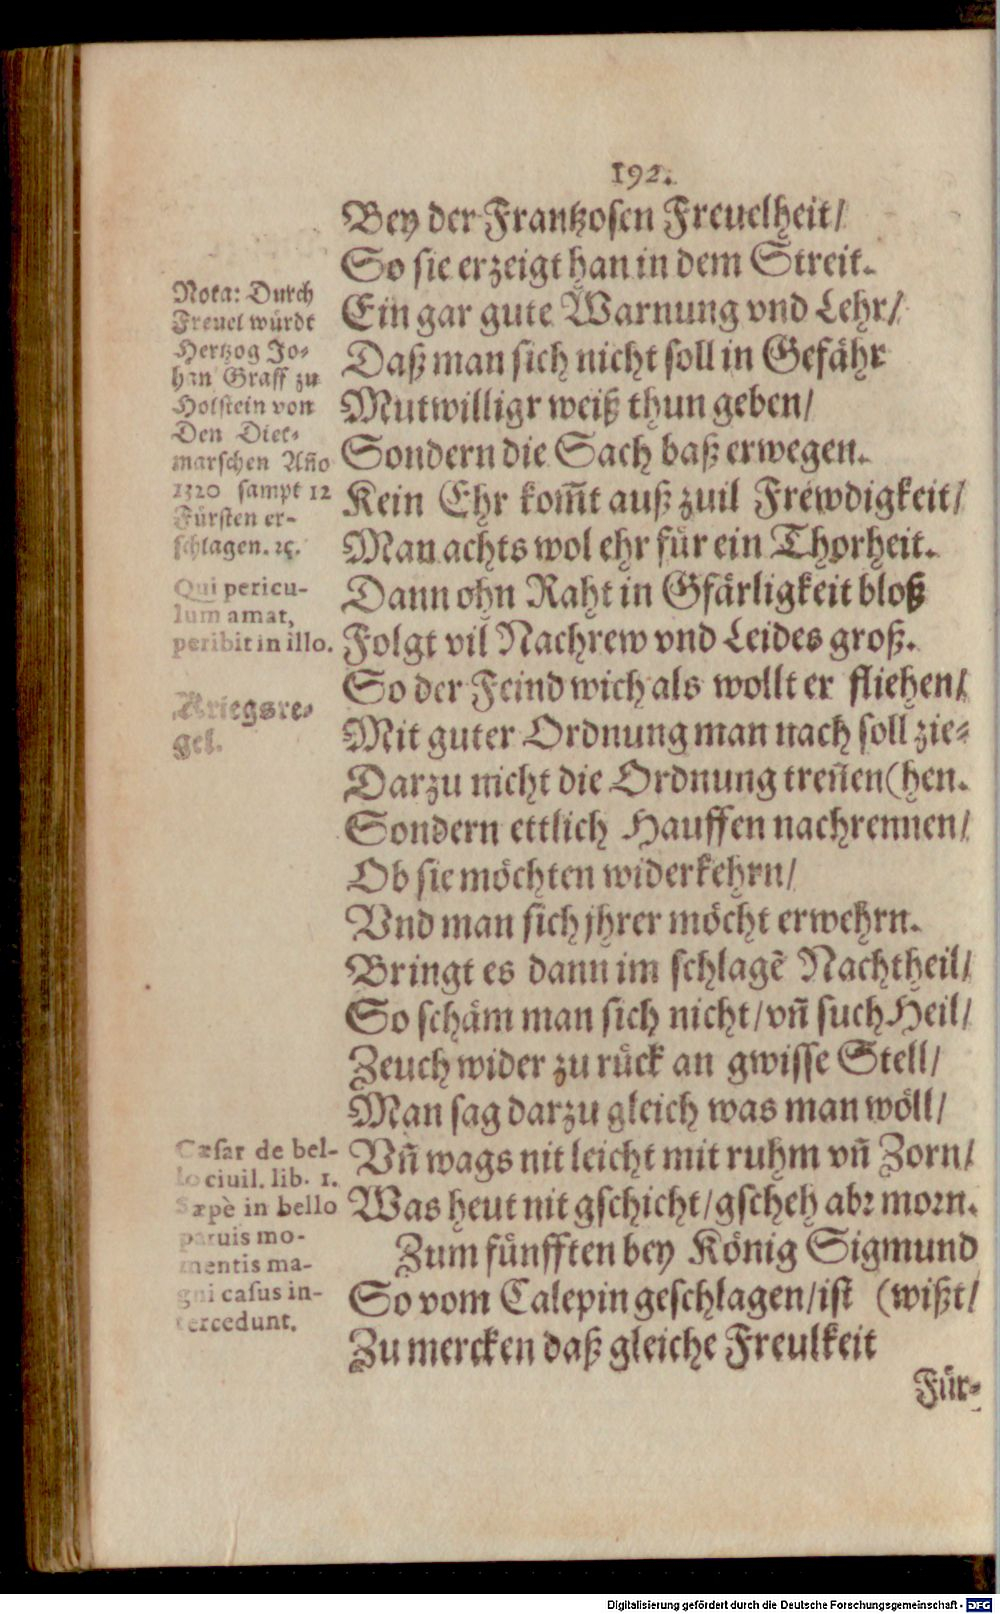 192.
Bey der Frantzosen Freuelheit/
So sie erzeigt han in dem Streit.
Ein gar gute Warnung vnd Lehr/
Daß man sich nicht soll in Gefähr
Mutwilligr weiß thun geben/
Sondern die Sach baß erwegen.
Kein Ehr kom̃t auß zuil Frewdigkeit/
Man achts wol ehr für ein Thorheit.
Dann ohn Raht in Gfärligkeit bloß
Folgt vil Nachrew vnd Leides groß.
So der Feind wich als wollt er fliehen/
Mit guter Ordnung man nach soll zie-
Darzu nicht die Ordnung treñen (hen.
Sondern ettlich Hauffen nachrennen/
Ob sie möchten widerkehrn/
Vnd man sich jhrer möcht erwehrn.
Bringt es dann im schlagẽ Nachtheil/
So schäm man sich nicht/vñ such Heil/
Zeuch wider zu rück an gwisse Stell/
Man sag darzu gleich was man wöll/
Vñ wags nit leicht mit ruhm vñ Zorn/
Was heut nit gschicht/gscheh abr morn.
Zum fünfften bey König Sigmund
So vom Calepin geschlagen/ist (wißt/
Zu mercken daß gleiche Freulkeit
Für-
Nota: Durch
Freuel würdt
Hertzog Jo-
han Graff zu
Holstein von
Den Diet-
marschen Año
1320 sampt 12
Fürsten er-
schlagen. ꝛc.
Qui pericu-
lum amat,
peribit in illo.
Kriegsre-
gel.
Cæsar de bel-
lo ciuil. lib. 1.
Sæpè in bello
paruis mo-
mentis ma-
gni casus in-
tercedunt.
Digitalisierung gefördert durch die Deutsche Forschungsgemeinschaft - DFG